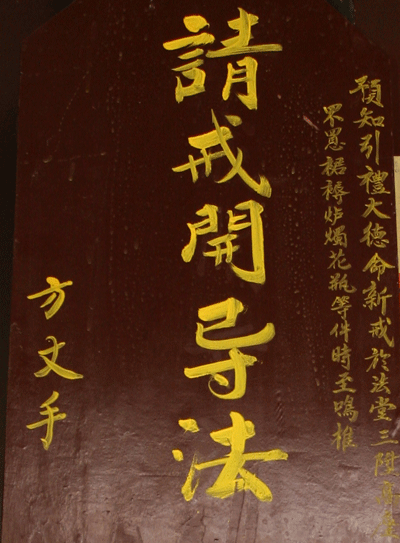 預知引禮大德命新戒於法堂三陞高座
不愚裾褥炉燭花瓶等件時至鳴椎
請戒開导法
方丈手